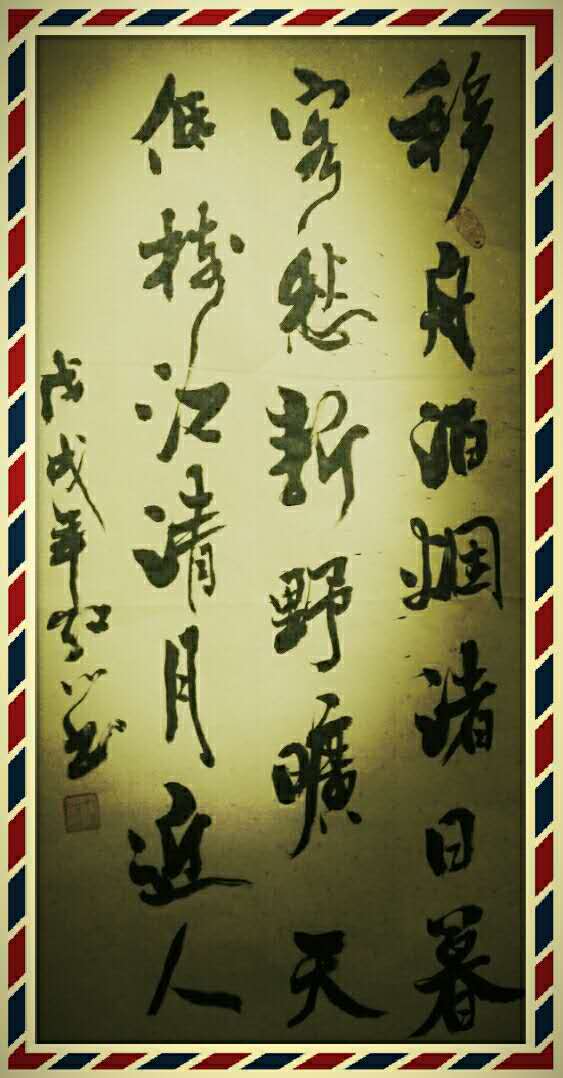 移舟泊烟渚日暮
客愁新野曠天
低樹江清月近人
戊戌年